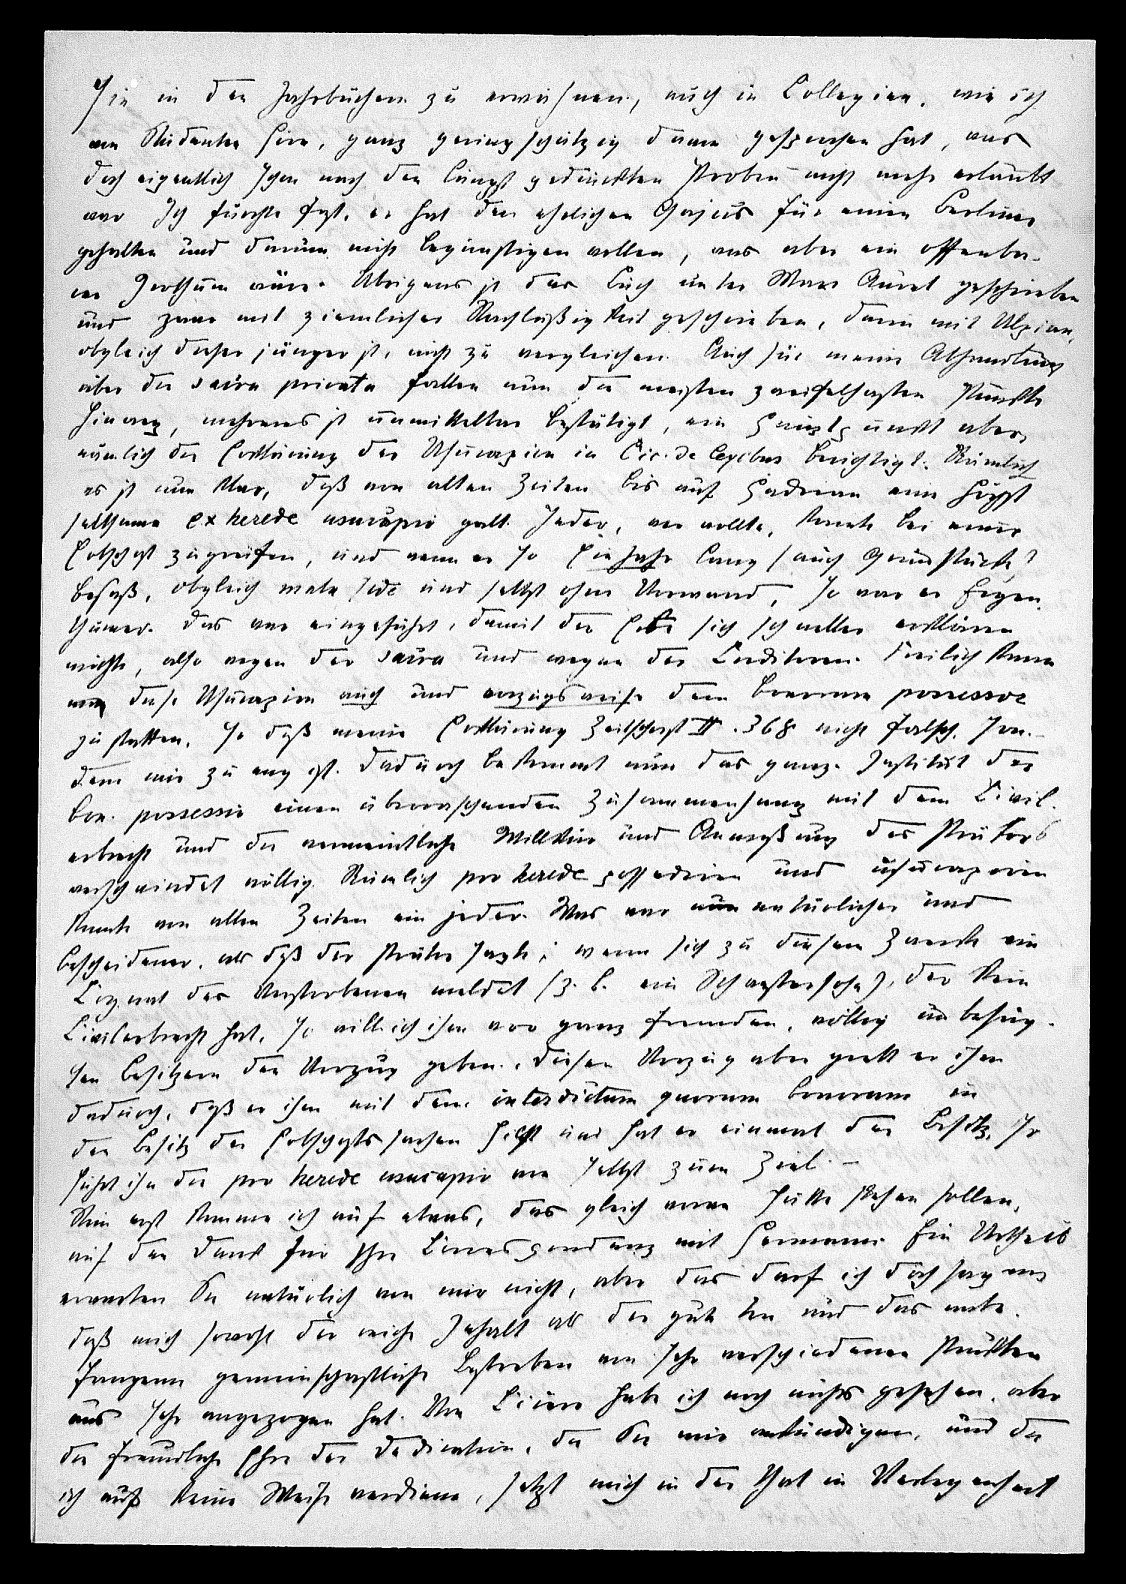 Sie in den Jahrbüchern zu erwähnen, auch in Collegien, wie ich
von Studenten höre, ganz geringschätzig davon gesprochen hat, was
doch eigentlich schon nach den längst gedruckten Proben nicht mehr erlaubt
war. Ich fürchte fast, er hat den ehrlichen Gajus für einen Berliner
gehalten und darum nicht begünstigen wollen, was aber ein offenba-
rer Irrthum wäre. Übrigens ist das Buch unter Marc Aurel geschrieben
und zwar mit ziemlicher Nachläßigkeit geschrieben, darin mit Ulpian,
obgleich dieser jünger ist, nicht zu vergleichen. Auch für meine Abhandlung
über die sacra privata fallen nun die meisten zweifelhaften Punkte
hinweg, mehreres ist unmittelbar bestätigt, ein Hauptpunkt aber,
nämlich die Erklärung der Usucapion in Cic. de legibus berichtigt. Nämlich
es ist nun klar, daß von alten Zeiten bis auf Hadrian eine höchst
seltsame ex herede usucapio galt. Jeder, wer wollte, konnte bei einer
Erbschaft zugreifen, und wenn er so Ein Jahr lang (auch Grundstücke)
besaß, obgleich mala fide und selbst ohne Vorwand, so war er Eigen-
thümer. Das war eingeführt, damit der Erbe sich schneller erklären
möchte, also wegen der sacra und wegen der Creditoren. Freilich kam
nun diese Usucapion auch und vorzugsweise dem bonorum possessor
zu statten, so daß meine Erklärung Zeitschrift II. 368 nicht falsch, son-
dern nur zu eng ist. Dadurch bekommt nun das ganze Institut der
bon. possessio einen überraschenden Zusammenhang mit dem Civil-
erbrecht und die vermeintliche Willkür und Anmaßung des Prätors
verschwindet völlig. Nämlich pro herede possediren und usucapiren
konnte von alten Zeiten ein jeder. Was war nun natürlicher und
bescheidener, als daß der Prätor sagte: wenn sich zu diesem Zwecke ein
Cognat des Verstorbenen meldet (z. B. ein Schwestersohn), der kein
Civilerbrecht hat, so will ich ihm vor ganz fremden, völlig unbefug-
ten Besitzern den Vorzug geben. Diesen Vorzug aber giebt er ihm
dadurch, daß er ihm mit dem interdictum quorum bonorum in
den Besitz der Erbschaftssachen hilft und hat er einmal den Besitz, so
führt ihn die pro herede usucapio von selbst zum Ziel. –
Nun erst komme ich auf etwas, das gleich vorne hätte stehen sollen,
auf den Dank für Ihre Correspondenz mit Hermann. Ein Urtheil
erwarten Sie natürlich von mir nicht, aber das darf ich doch sagen
daß mich sowohl der reiche Inhalt als der gute Ton und das unbe-
fangene gemeinschaftliche Bestreben von sehr verschiedenen Punkten
aus sehr angezogen hat. Von Livius habe ich noch nichts gesehen, aber
die freundliche Ehre der Dedication, die Sie mir ankündigen, und die
ich auf keine Weise verdiene, setzt mich in der That in Verlegenheit